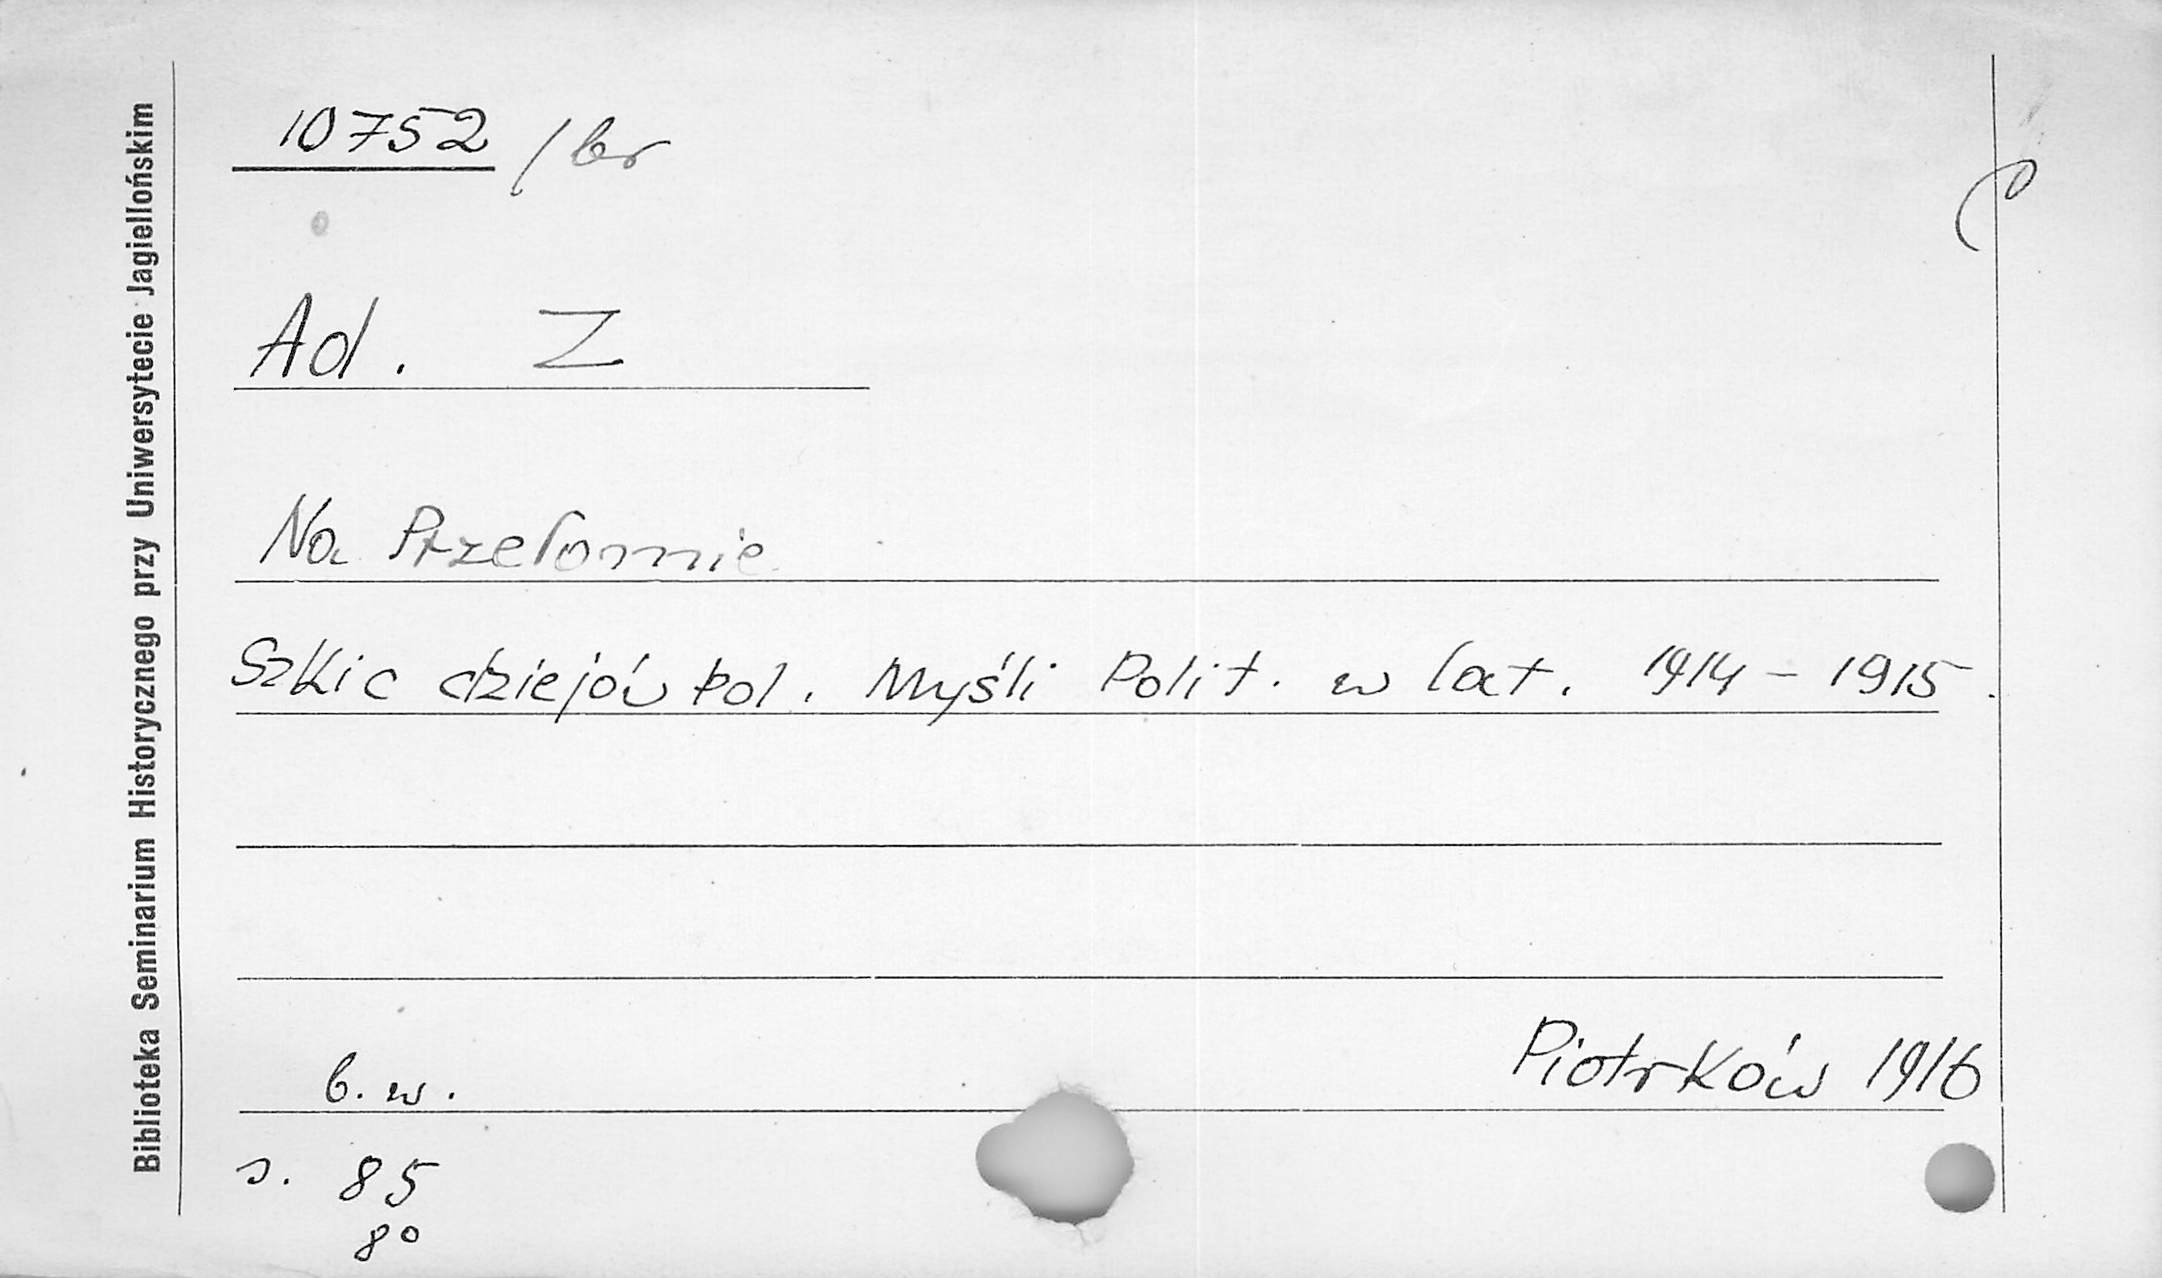 Biblioteka Seminarium Historycznego przy Uniwersytecie Jagiellońskim
10752 /br
Ad. Z
Na Przełomie
Szkic dziejów pol. Myśli Polit. w lat. 1914 - 1915.
b. w.
Piotrków 1916
s. 85
8°